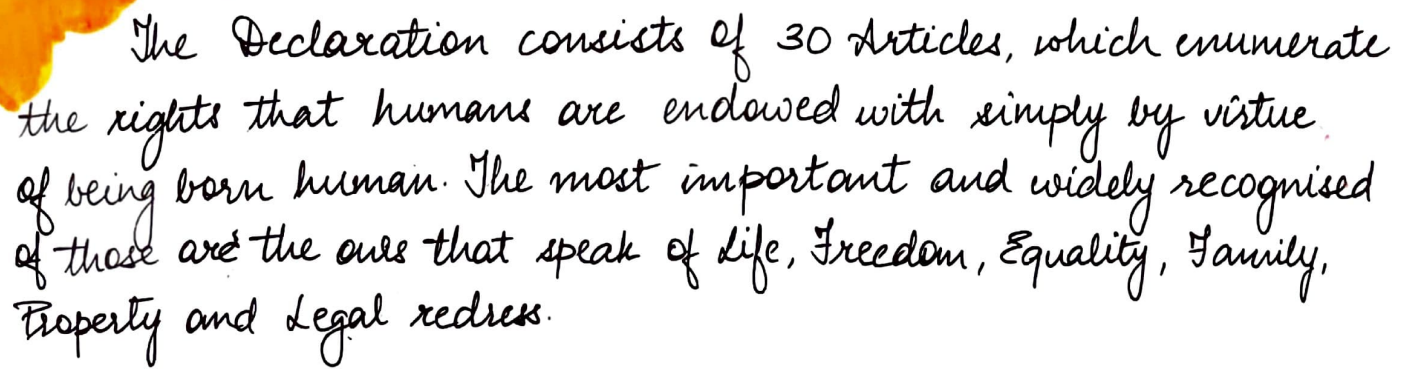 The Declaration consists of 30 Articles, which enumerate
the rights that humans are endowed with simply by virtue
of being born human. The most important and widely recognised
of those are the ones that speak of Life, Freedom, Equality, Family,
Property and Legal redress.